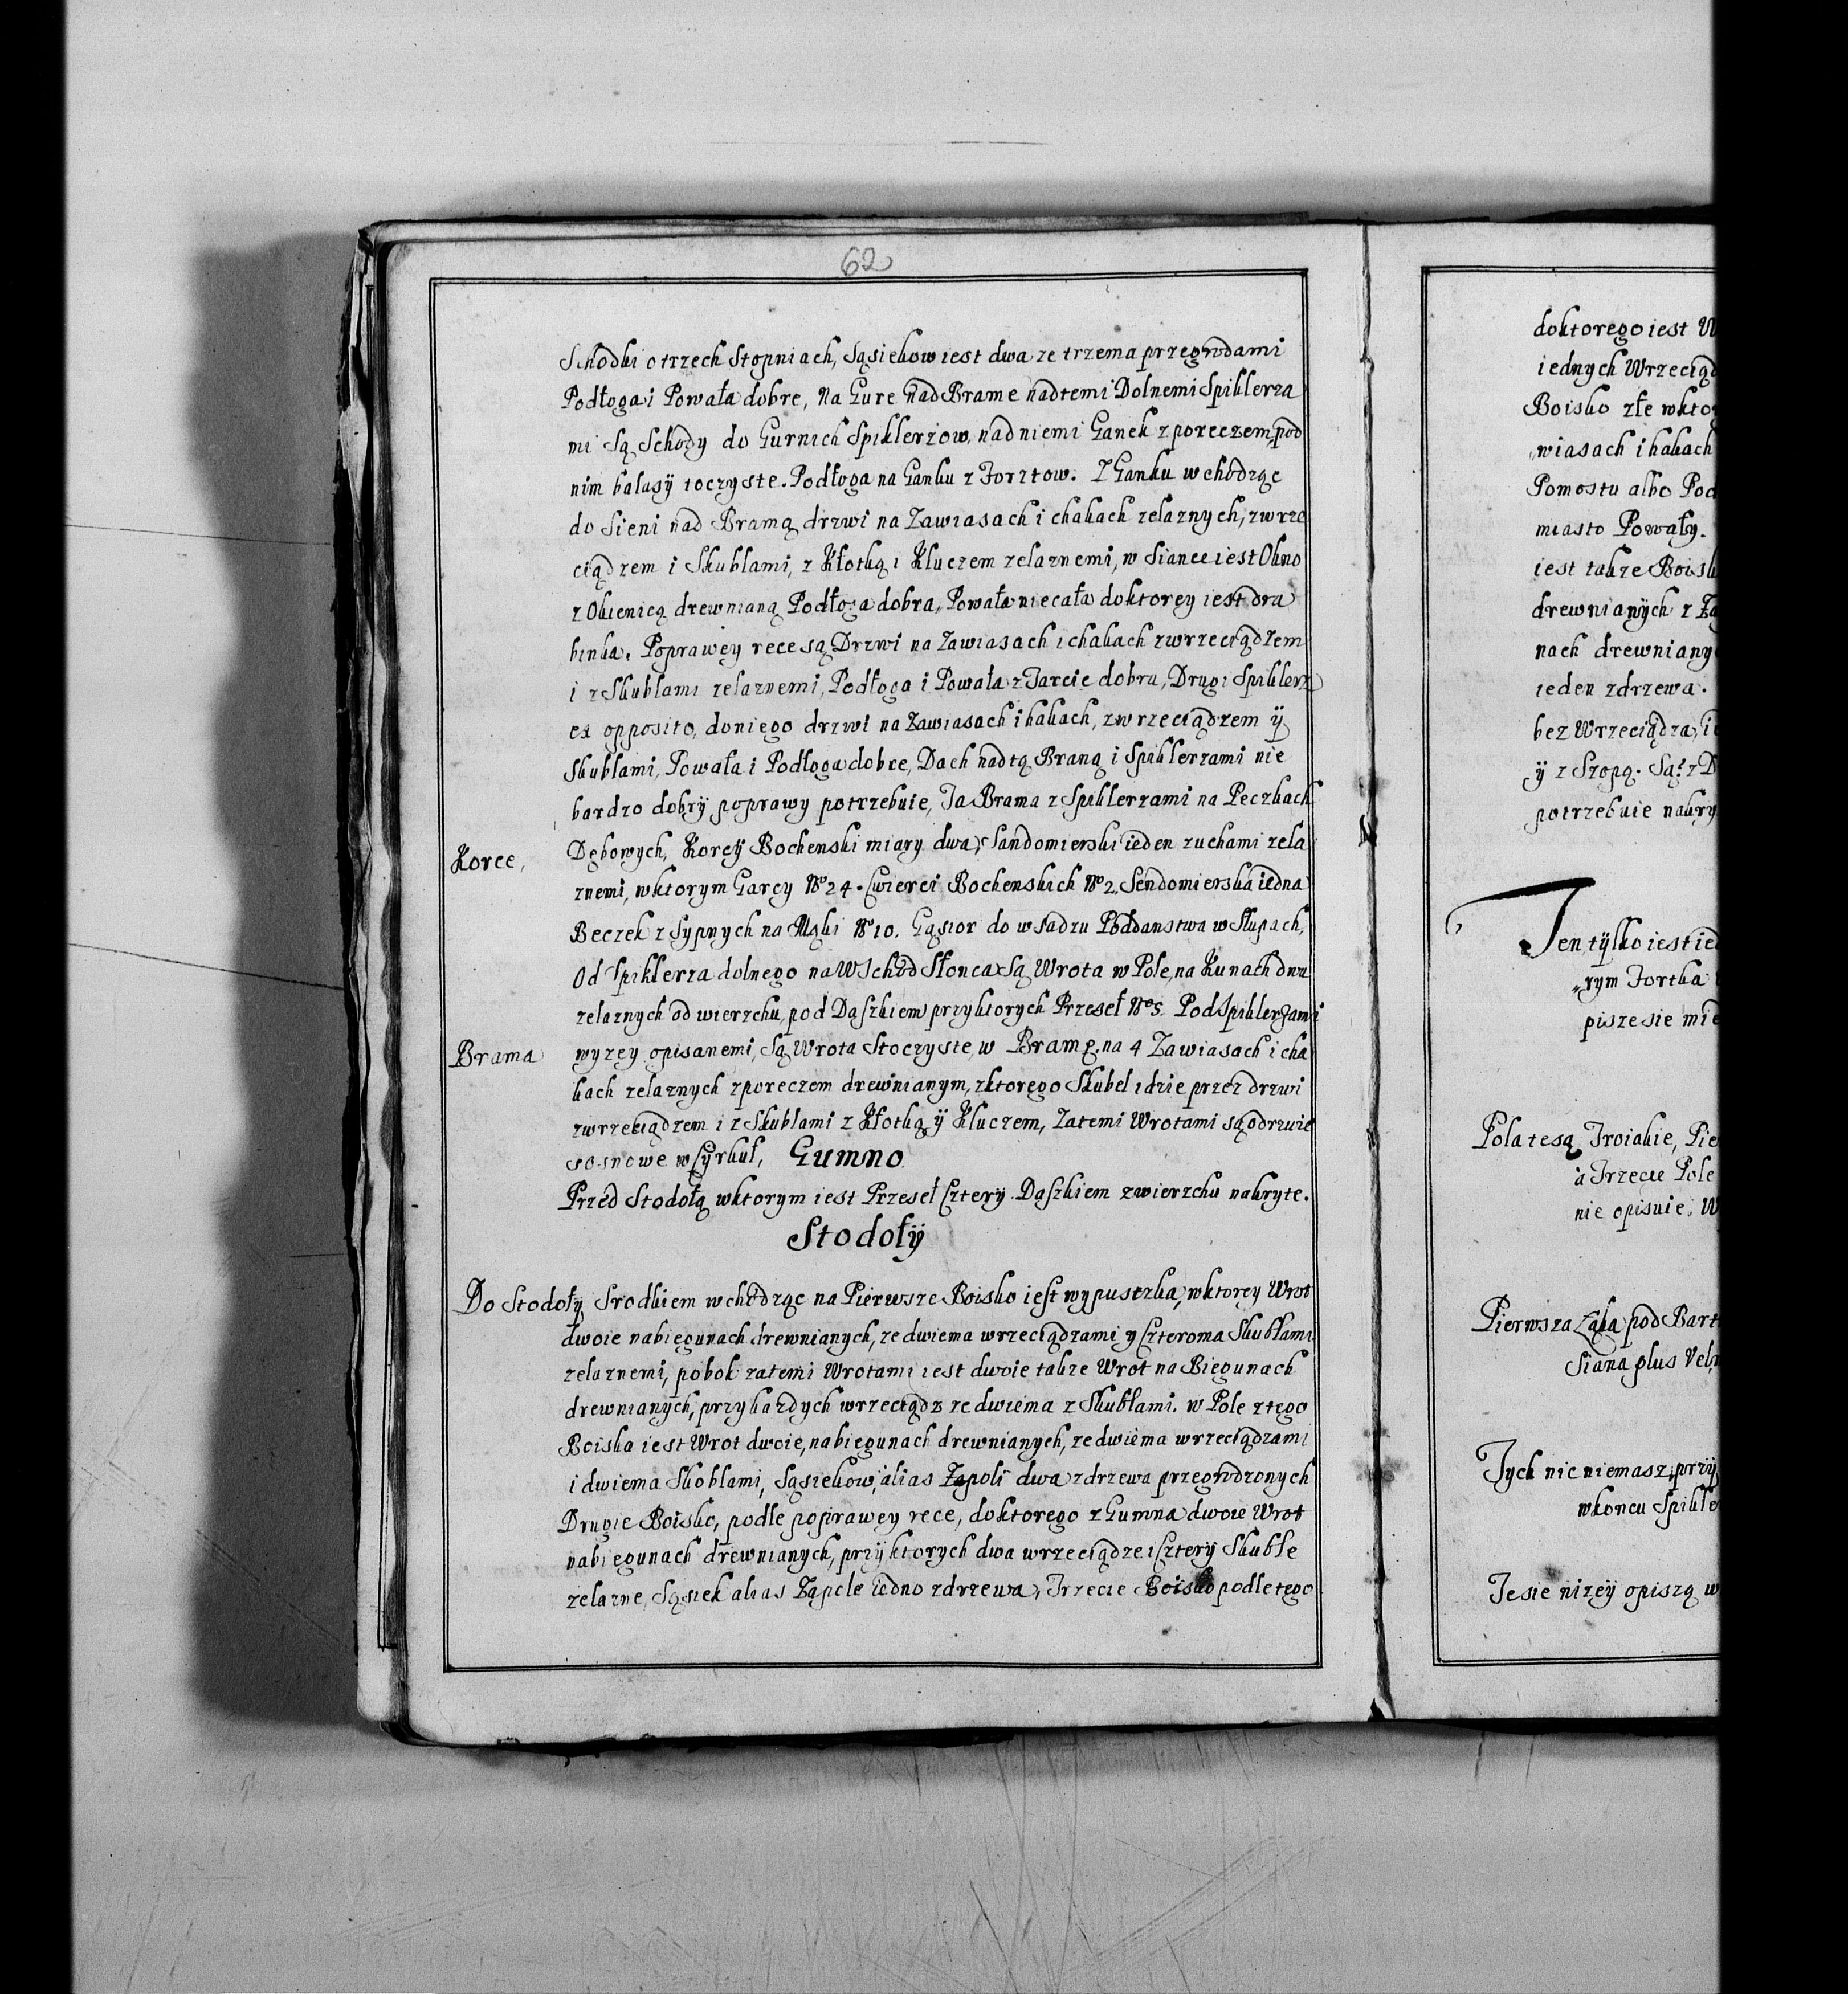 62
Schodki o trzech Stopniach, Sąsiekow iest dwa ze trzema przegrodami
Podłoga i Powała dobre, na Gure nad Brame nad temi Dolnemi Spiklerza
mi Są Schody do Gurnich Spiklerzow, nad niemi Ganek z poreczem, pod
nim balasÿ toczyste. Podłoga na Ganku z Forsztow. Z Ganku wchodząc
do Sieni nad Bramą drzwi na Zawiasach i chakach zelaznych, zwrze
ciądzem i Skublami, z Kłotką i Kluczem zelaznemi, w Siance iest Okno
z Okienicą drewnianą Podłoga dobra, Powała niecała doktorey iest dra
binka. Poprawey rece są Drzwi na Zawiasach i chakach zwrzeciądzem
i z Skublami zelaznemi, Podłoga i Powała z Tarcic dobra, Drugi Spiklerz
ex opposito, doniego drzwi na Zawiasach i hakach, zwrzeciądzem ÿ
Skublami, Powała i Podłoga dobre, Dach nad tą Bramą i Spiklerzami nie
bardzo dobrÿ poprawy potrzebuie, Ta Brama z Spiklerzami na Peczkach
Korce,
Dębowych, Korcÿ Bochenski miary dwa, Sandomierski ieden zuchami zela
znemi, wktorym Garcy No 24. Cwierci Bochenskich No 2, Sendomierska iedna
Beczek z Sypnych na Mąki No 10. Gąsior do wsadzu Poddanstwa w Słupach,
Od Spiklerza dolnego na WSchod Słonca Są Wrota w Pole, na Kunach dwu
zelaznych od wierzchu, pod Daszkiem przyktorych Przeseł No 5. Pod Spiklerzami
Brama
wyzey opisanemi, Są Wrota Stoczyste, w Bramę na 4 Zawiasach i cha
kach zelaznych zporeczem drewnianym, zktorego Skubel idzie przez drzwi
zwrzeciądzem i z Skublami z Kłotką ÿ Kluczem, Zatemi Wrotami są odrzwie
sosnowe w Cyrkuł, Gumno
Przed Stodołą wktorym iest Przeseł Cztery Daszkiem zwierzchu nakryte.
Stodołÿ
Do Stodoły Srodkiem wchodząc na Pierwsze Boisko iest wypustzka, wktorey Wrot
dwoie nabiegunach drewnianych, ze dwiema wrzeciądzami y Czteroma Skublami
zelaznemi, pobok zatemi Wrotami iest dwoie takze Wrot na Biegunach
drewnianych, przykazdych wrzeciądz ze dwiema z Skublami. w Pole ztego
Boiska iest Wrot dwoie, nabiegunach drewnianych, ze dwiema wrzeciądzami
i dwiema Skoblami, Sąsiekow, alias Zapoli dwa zdrzewa przegrodzonych
Drugie Boisko, podle poprawey rece, doktorego z Gumna dwoie Wrot
nabiegunach drewnianych, przÿktorych dwa wrzeciądze i Czterÿ Skuble
zelazne, Sąsiek alias Zapole iedno zdrzewa, Trzecie Boisko podle tego
doktorego iest W
iednych Wrzeciąd
Boisko złe wkto
wiasach i hakach
Pomostu albo Pod
miasto Powały.
iest takze Boisk
drewnianÿch z Za
nach drewniany
ieden zdrzewa.
bez Wrzeciądza, i
ÿ z Szopą. Są z D
potrzebuie nakry
Ten tÿlko iest ied
rym Fortka
pisze sie mie
Pola te są Troiakie, Pie
a Trzecie Pole
nie opisuie, W
Pierwsza Łąka pod Bart
Siana plus Vel
Tych nic niemasz, przÿ
wkoncu Spikle
Te sie niżeÿ opiszą w